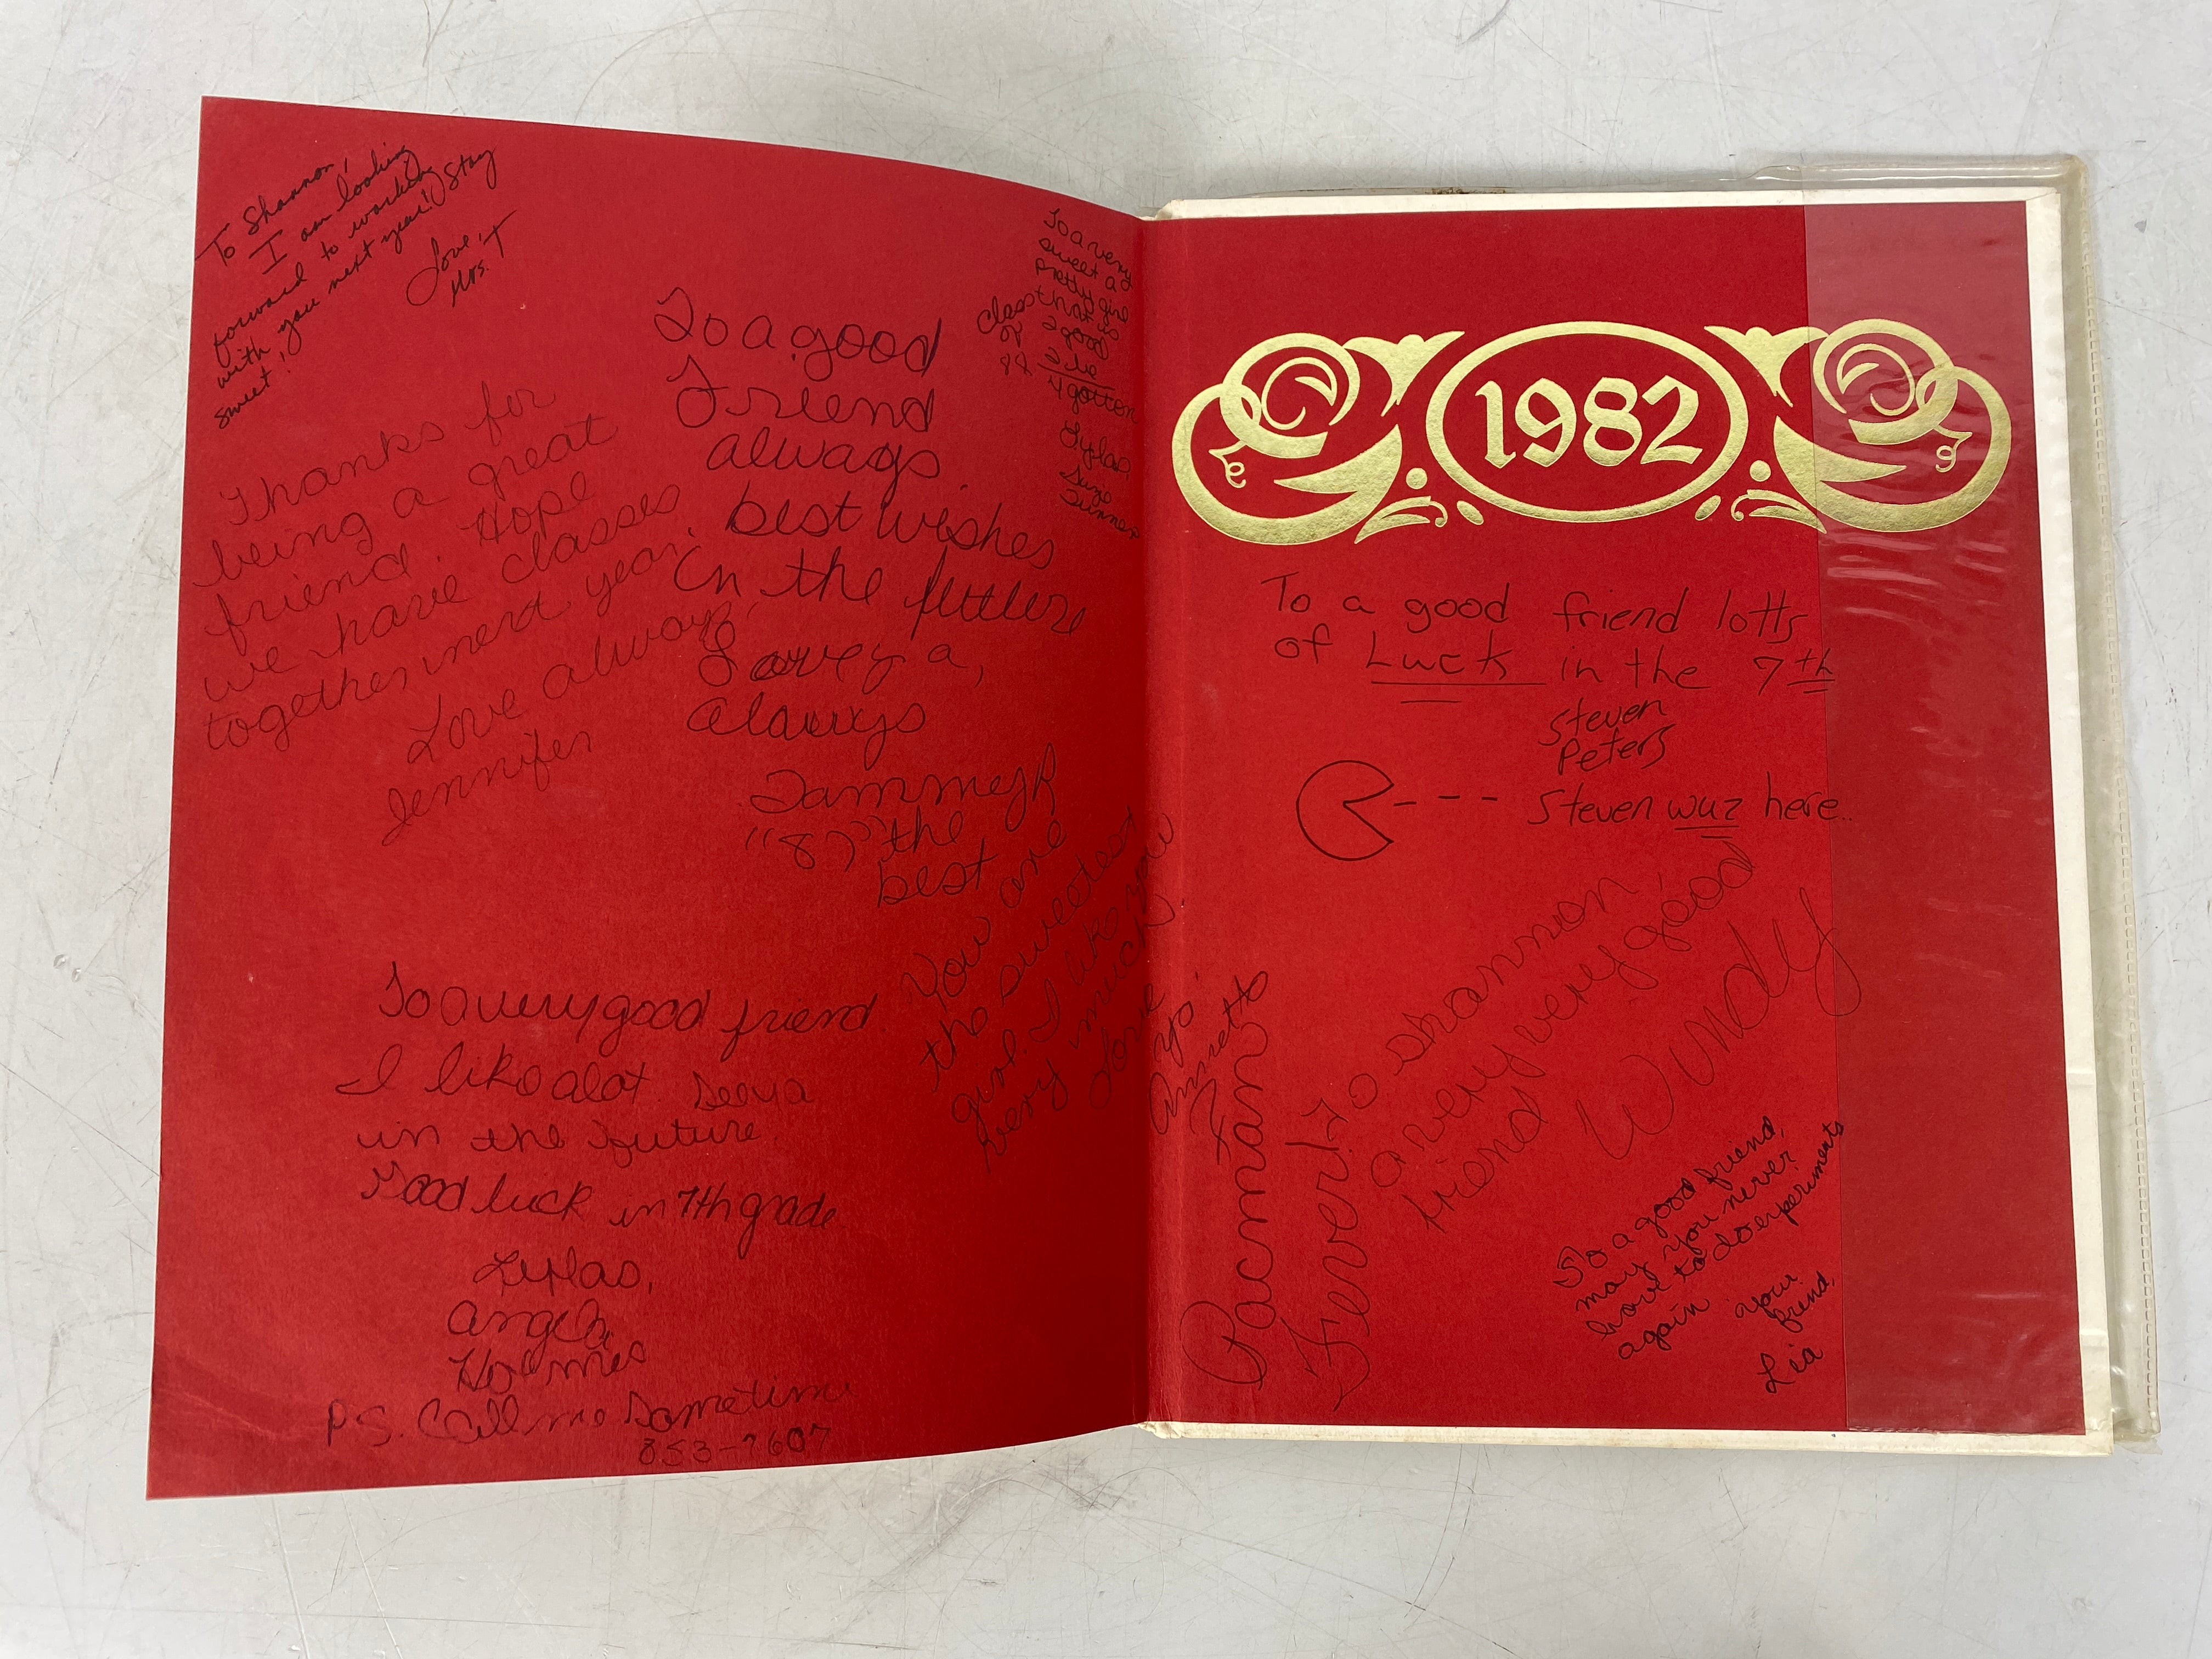 To Shannon,
I am looking
forward to working
with you next year! Stay
sweet!
Love,
Mrs. T
Thanks for
being a great
friend. Hope
we have classes
together next year.
Love always,
Jennifer
To a good
Friend
always
best wishes
in the future
Love ya,
always
Tammy R
"8 the
best
To a very
sweet ad
pretty girl
that is
2 good
2 be
4 gotten
Class
of
88
Lylas,
Suze
You are
the sweetest
girl. I like you
very much
Love
Ya!
Annette
To a very good friend
I like alot. See ya
in the future.
Good luck in 7th grade
Lylas,
Angela
Holmes
P.S. Call me sometime
853-7607
1982
To a good friend lotts
of Luck in the 7th
Steven
Peters
--- Steven wuz here..
Pacman
Fever!
To Shannon,
a very very good
friend
Wendy
To a good friend,
may you never
have to do experiments
again
your
friend,
Lia